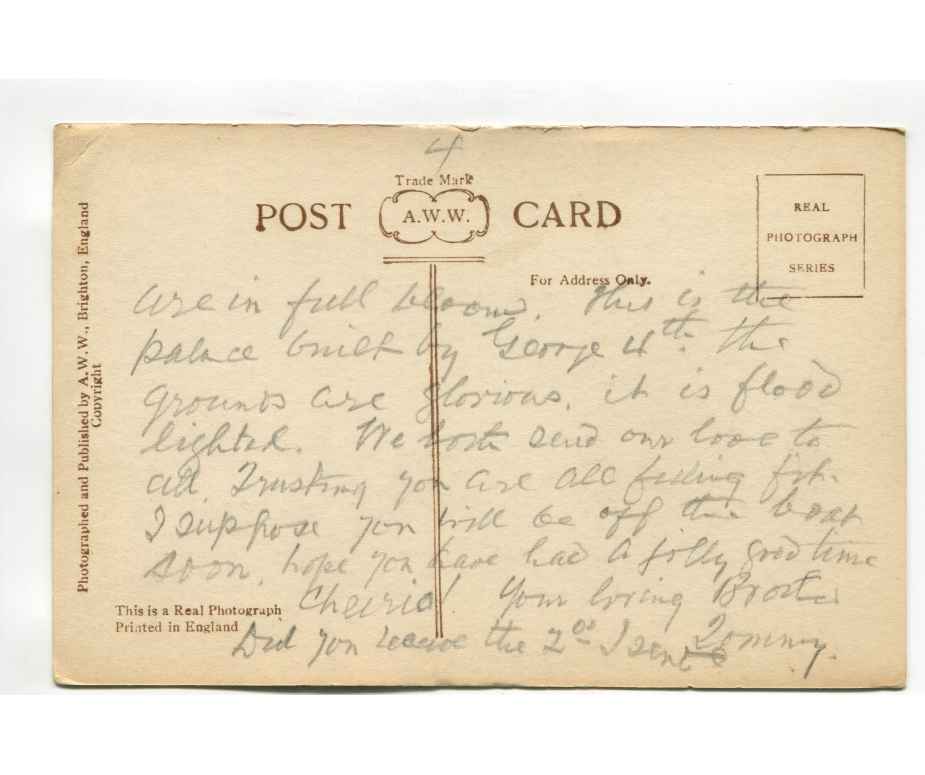 4
Trade Mark
POST A.W.W. CARD
REAL
PHOTOGRAPH
SERIES
For Address Only.
Photographed and Published by A.W.W., Brighton, England
Copyright
are in full bloom. This is the
palace built by George 4th. the
grounds are glorious. it is flood
lighted. We both send our love to
all. Trusting you are all feeling fit.
I suppose you will be off the boat
soon, hope you have had a jolly good time
Cheirio! Your loving Brother
Tommy.
Did you receive the I sent
This is a Real Photograph
Printed in England